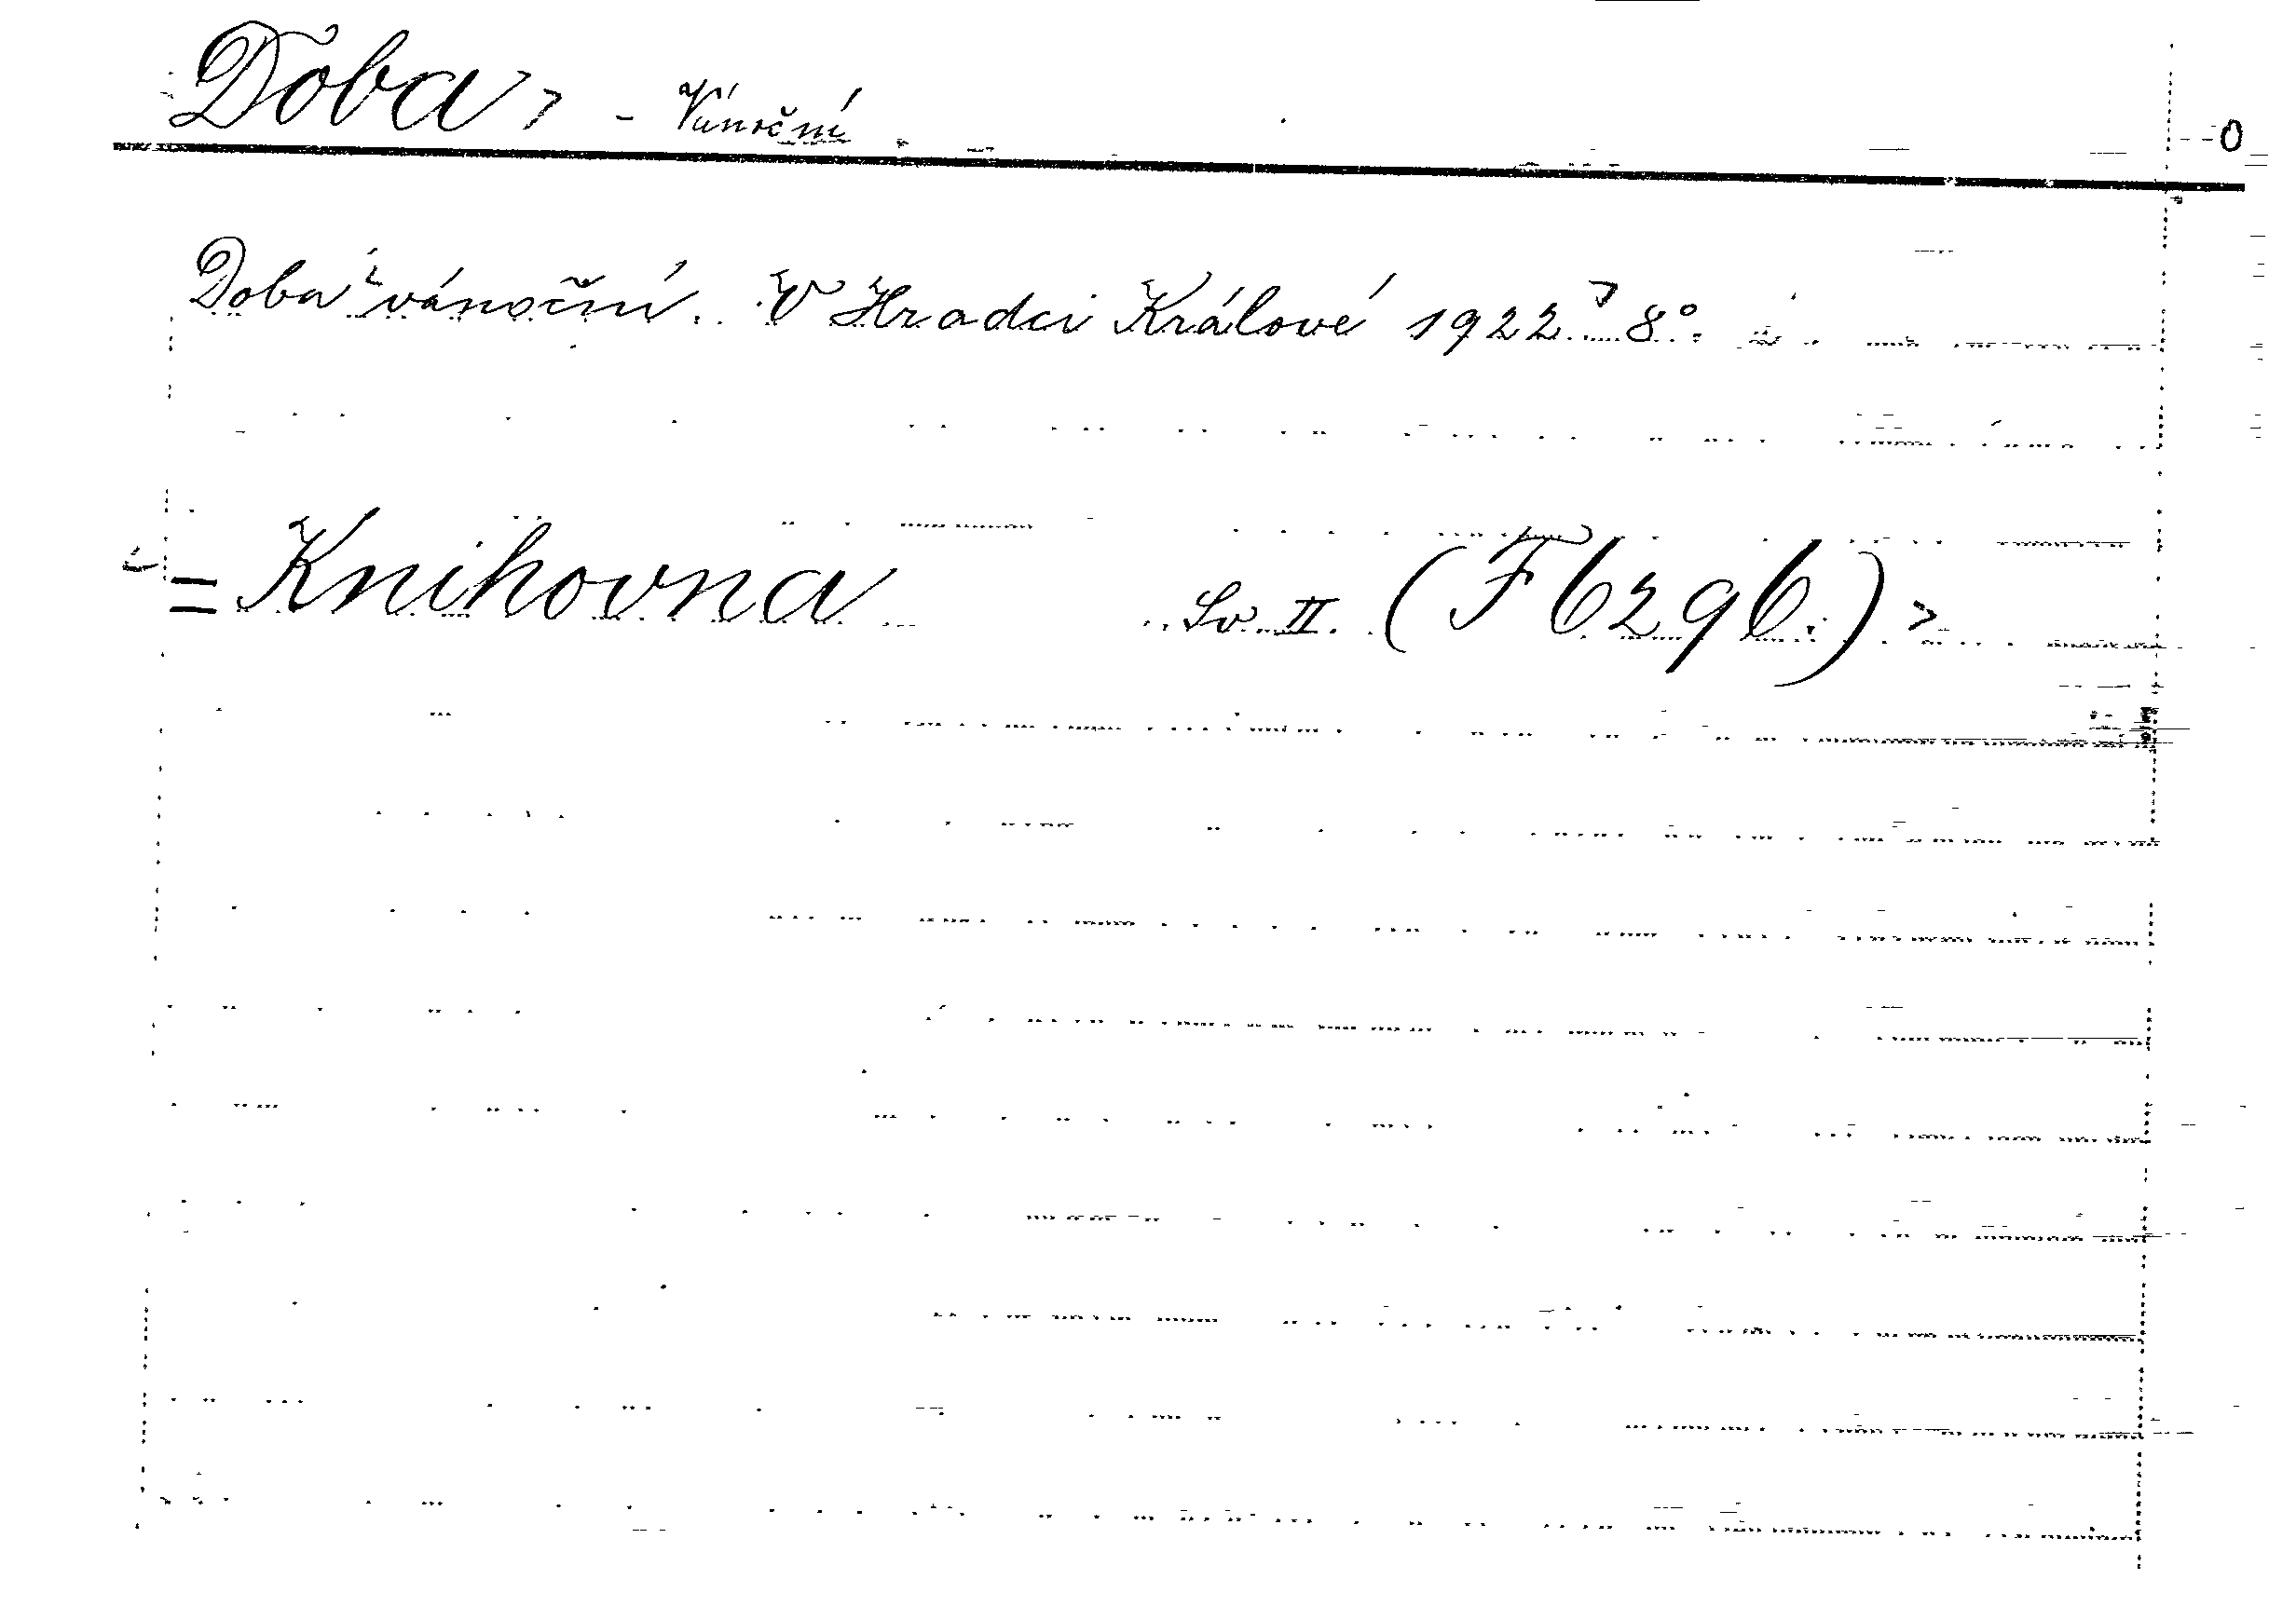 Doba, - Vánoční
Doba vánoční. V Hradci Králové 1922. 8°.
= Knihovna Sv. II. (F 6296.)